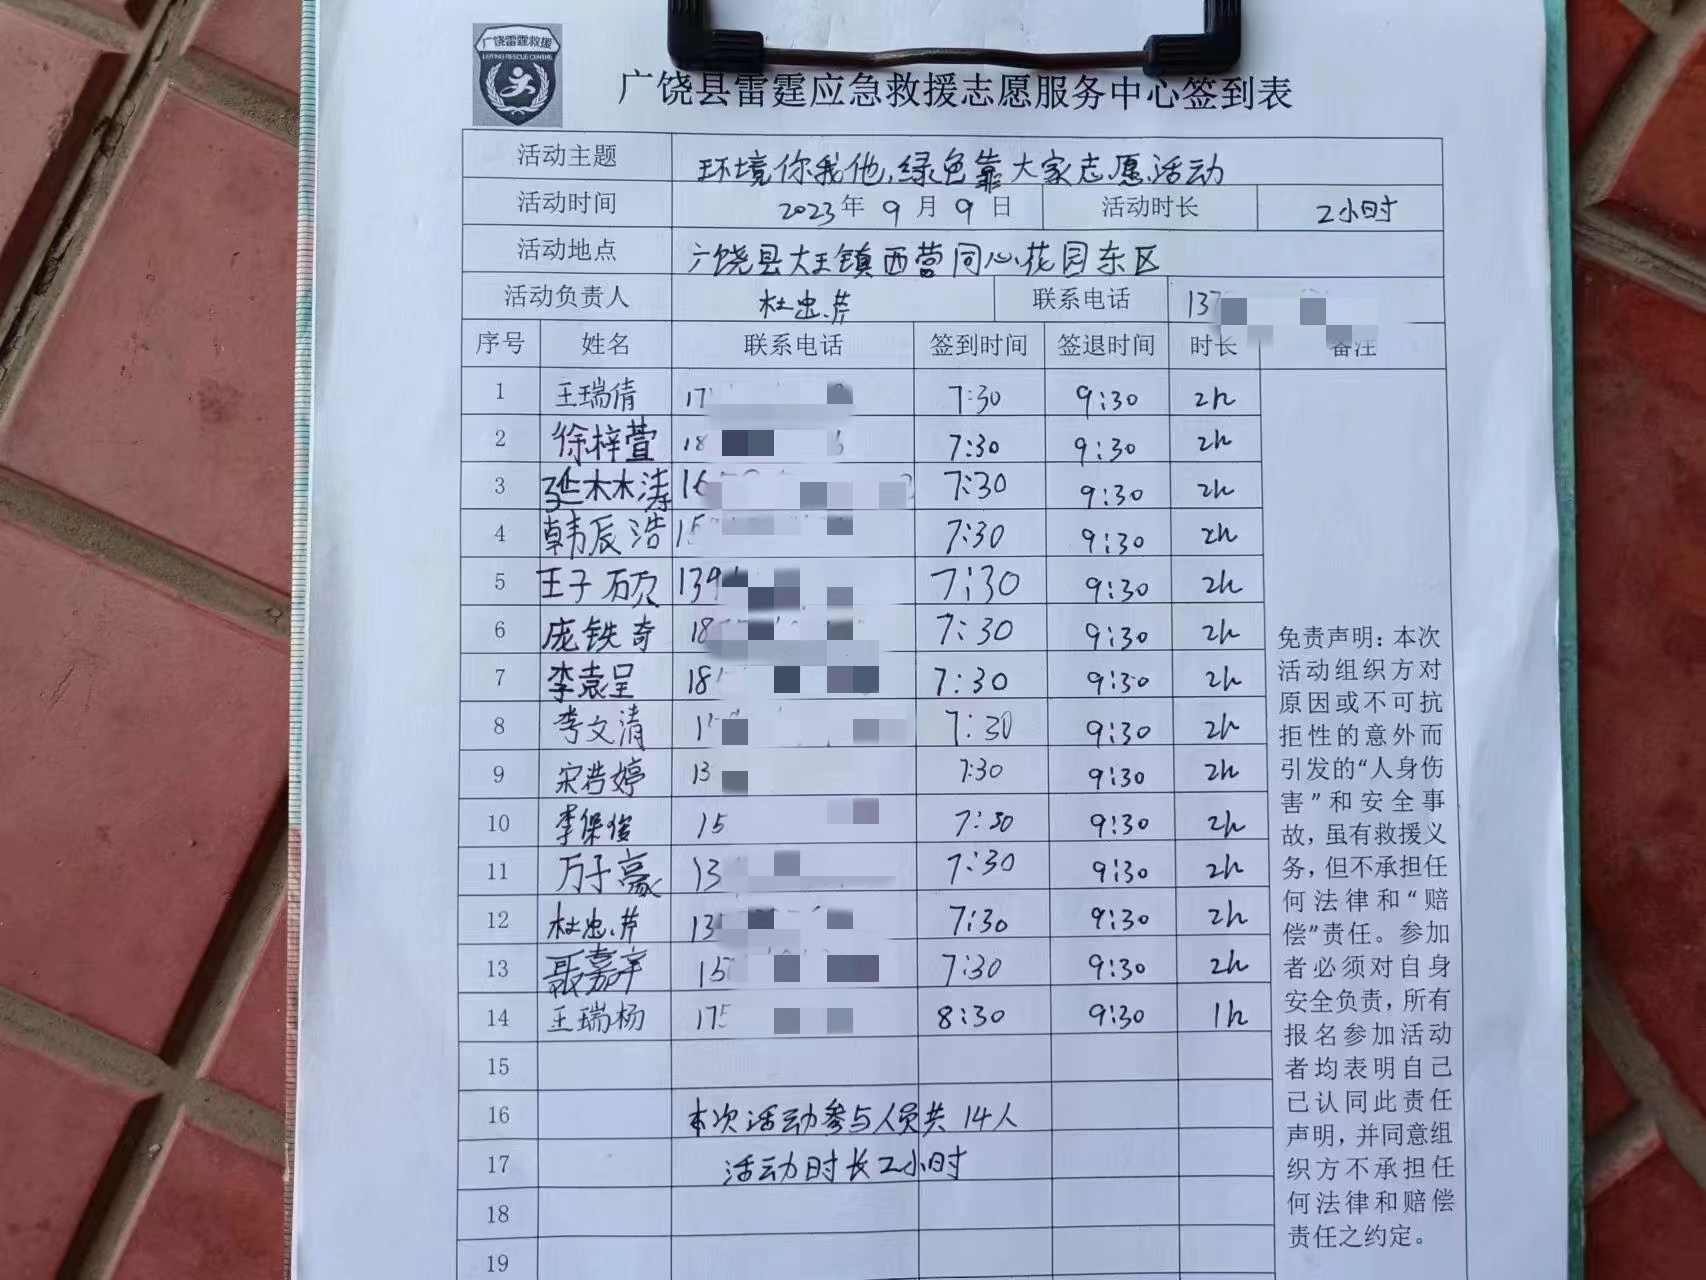 广饶雷霆救援
广饶县雷霆应急救援志愿服务中心签到表
活动主题 环境你我他,绿色靠大家志愿活动
活动时间 2023年 9 月 9 日 活动时长 2小时
活动地点 广饶县大王镇西营同心花园东区
活动负责人 杜忠芹 联系电话 137
序号 姓名 联系电话 签到时间 签退时间 时长 备注
1 王瑞倩 17 7:30 9:30 2h
2 徐梓萱 18 7:30 9:30 2h
3 延木木涛 16 7:30 9:30 2h
4 韩辰浩 15 7:30 9:30 2h
5 王子硕 139 7:30 9:30 2h
6 庞铁奇 18 7:30 9:30 2h
7 李袁呈 18 7:30 9:30 2h
8 李文清 1 7:30 9:30 2h
9 宋若婷 13 7:30 9:30 2h
10 李保俊 15 7:30 9:30 2h
11 万子豪 13 7:30 9:30 2h
12 杜忠芹 13 7:30 9:30 2h
13 聂嘉宇 15 7:30 9:30 2h
14 王瑞杨 175 8:30 9:30 1h
15
16 本次活动参与人员共 14人
17 活动时长2小时
18
19
免责声明：本次
活动组织方对
原因或不可抗
拒性的意外而
引发的“人身伤
害”和安全事
故，虽有救援义
务，但不承担任
何法律和“赔
偿”责任。参加
者必须对自身
安全负责，所有
报名参加活动
者均表明自己
已认同此责任
声明，并同意组
织方不承担任
何法律和赔偿
责任之约定。